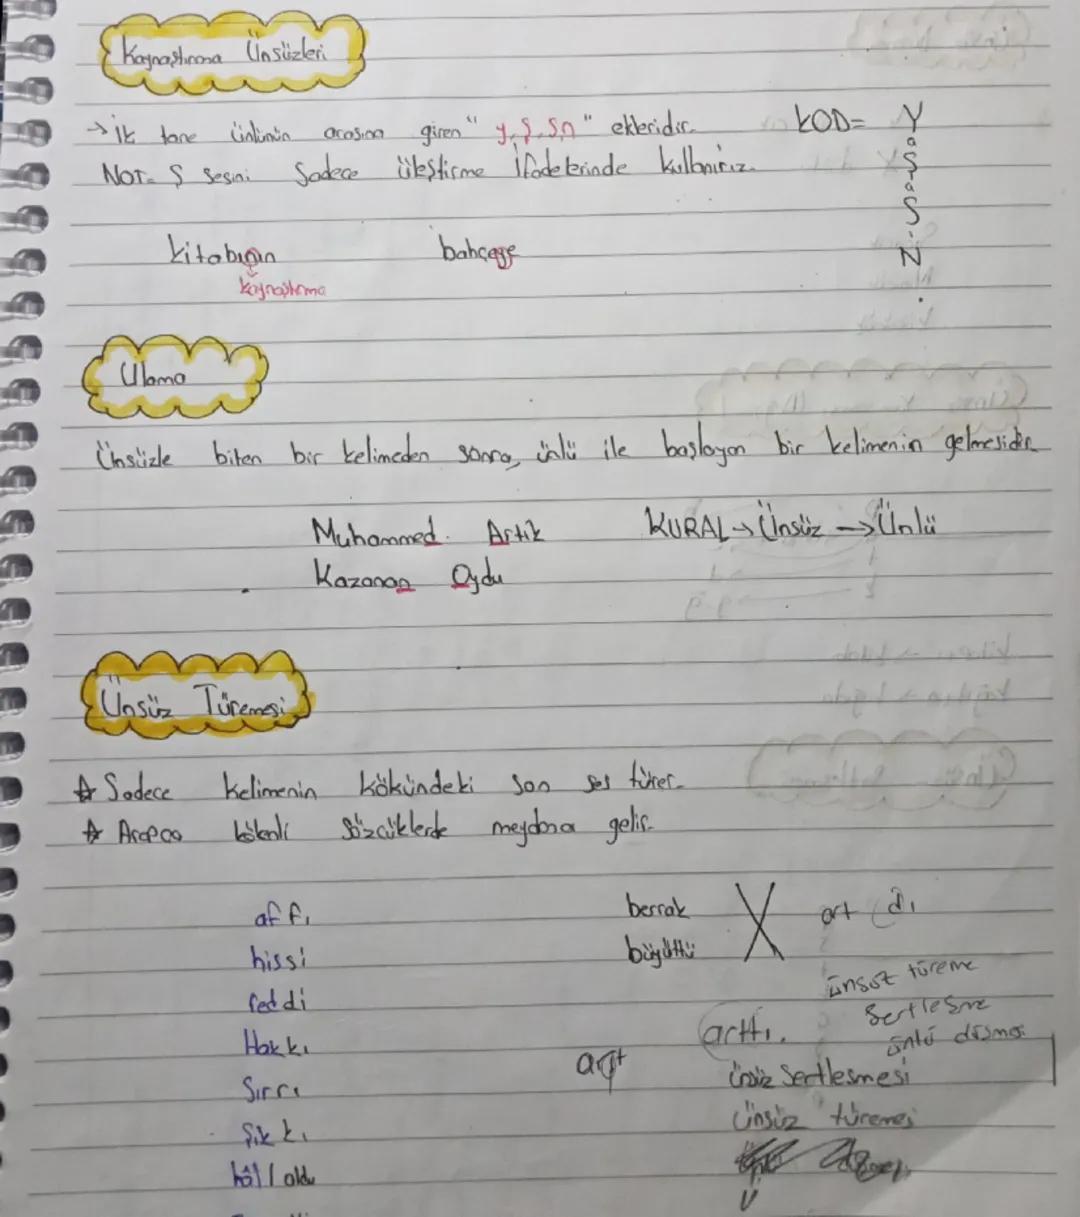 Kaynaştırma Ünsüzleri
→ İk tane ünlünün arasına giren "y, ş, s, n" ekleridir.
KOD= YaŞaSıN.
NOT= Ş sesini Sadece üleştirme İfadelerinde kullanırız.
kitabının bahçeye
kaynaştırma
Ulama
Ünsüzle biten bir kelimeden sonra, ünlü ile başlayan bir kelimenin gelmesidir.
Muhammed Artık KURAL → Ünsüz → Ünlü
Kazanan Oydu
Ünsüz Türemesi
☆ Sadece kelimenin kökündeki son ses türer.
☆ Arapça kökenli Sözcüklerde meydana gelir.
affı berrak X art dı
hissi büyüttü
ünsüz türeme
reddi Sertleşme
Hakkı arttı. ünlü düşmesi
art ünsüz Sertleşmesi
Sırrı
Şıkkı ünsüz türemesi
hâl l oldu